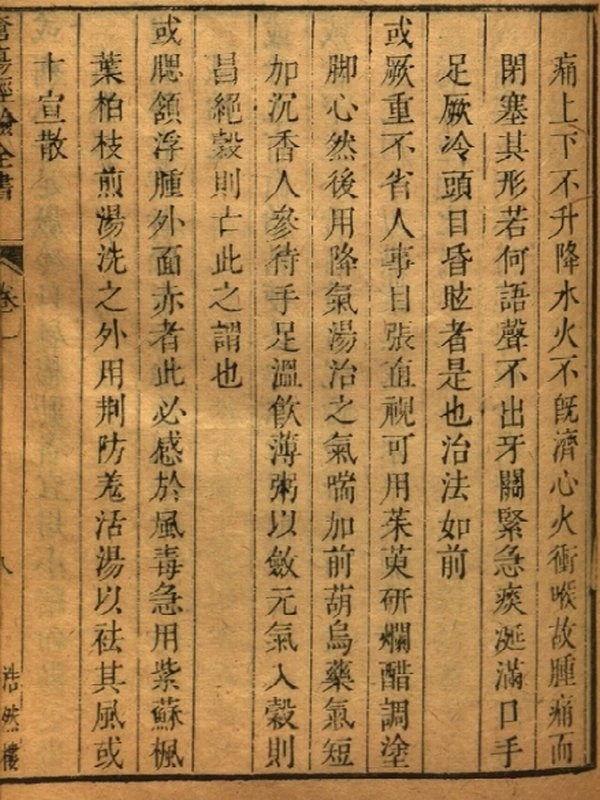 痛上下不升降水火不旣濟心火衝喉故腫痛而
閉塞其形若何語聲不出牙關緊急痰涎滿口手
足厥冷頭目昏眩者是也治法如前
或厥重不省人事目張直視可用茱萸研爛醋調塗
脚心然後用降氣湯治之氣喘加前葫烏藥氣短
加沉香人參待手足溫飮薄粥以斂元氣入穀則
昌絕穀則亡此之謂也
或腮頷浮腫外面赤者此必感於風毒急用紫蘇楓
葉柏枝煎湯洗之外用荆防羗活湯以祛其風或
十宣散
瘡瘍經驗全書
卷一
八
浩然樓